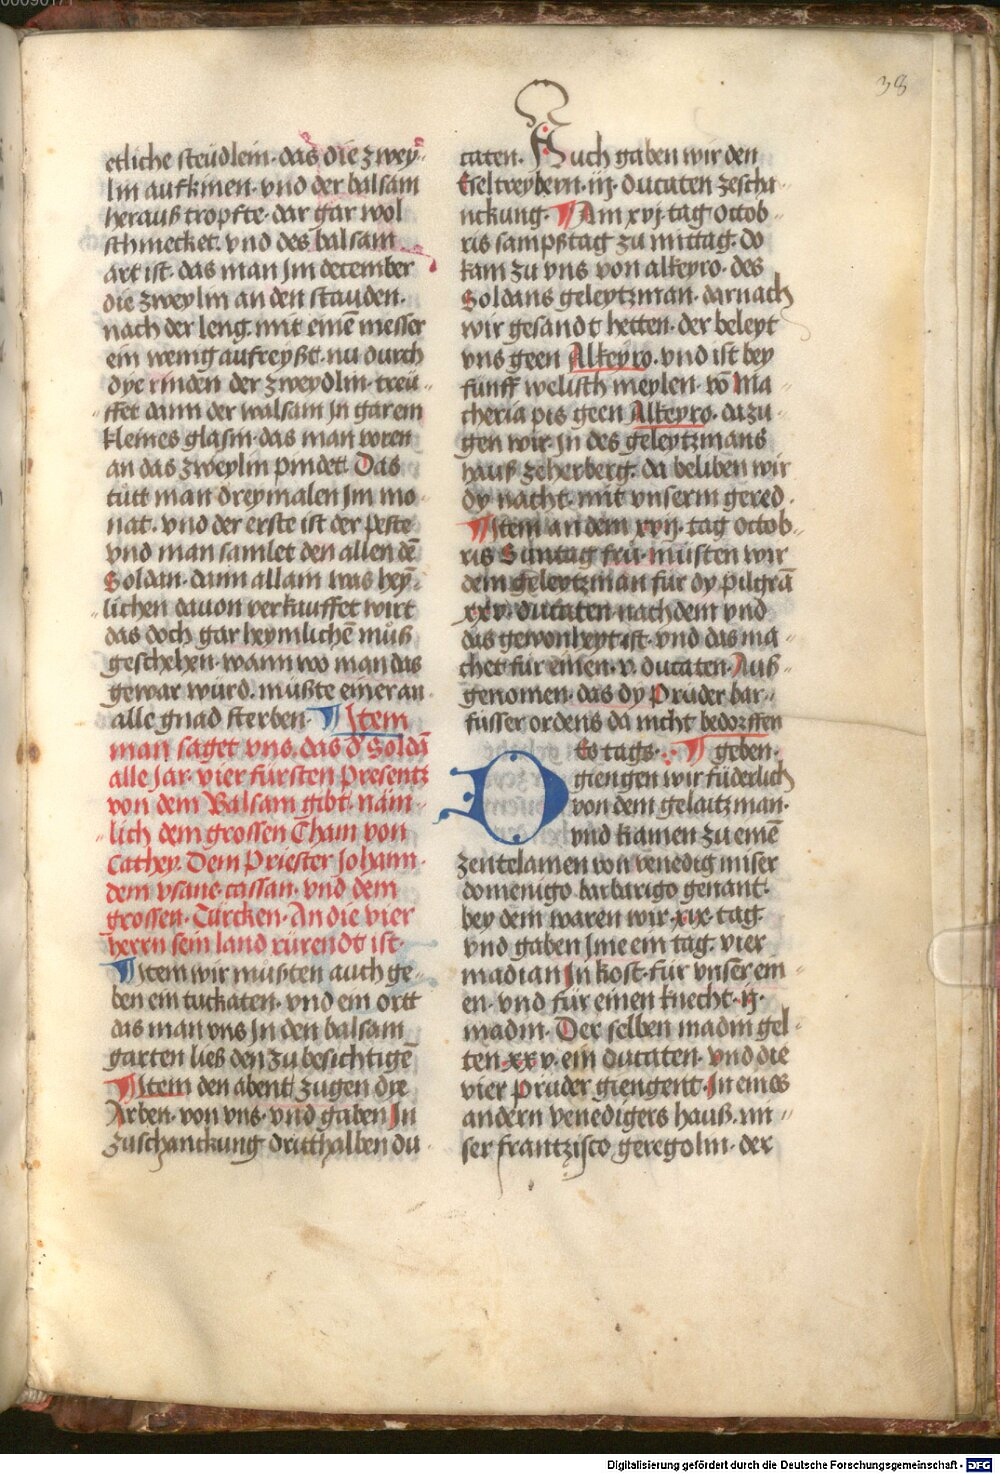 38
etliche steüdlein · das die zwey„
lin aufkinen · vnd der balsam
herauß tropfte · dar gar wol
schmecket · vnd des balsam
art ist · das man Jm december
die zweylin an den stauden ·
nach der leng · mit einē messer
ein wenig aufreyßt · nu durch
dye rinden der zweydlin · treü„
„ffet dann der walsam Jn gar ein
kleines glasin · das man voren
an das zweylin pindet · Das
tütt man dreymalen Jm mo
nat · vnd der erste ist der peste
vnd man samlet den allen dē
Soldan · dann allain was hey„
„lichen dauon verkauffet wirt
das doch gar heymlichē müß
geschehen · wann wo man das
gewar würd · müßte einer an
alle gnad sterben · ¶ Jtem
man saget vns · das d' Soldā
alle Jar · vier fürsten Presentz
von dem Balsam gibt · näm
„lich dem grossen Cham von
Cathey · Dem Priester Johann ·
dem vsane · cassan · vnd dem
grossen · Türcken · An die vier
herrn sein land rürendt ist ·
¶ Jtem wir müßten auch ge„
ben ein tuckaten · vnd ein ortt
das man vns Jn den balsam
garten ließ den zu besichtigē
¶ Jtem den abent zugen die
Arben · von vns · vnd gaben Jn
zuschanckung dritthalben du
caten · Auch gaben wir den
Eseltreybern · iij · ducaten zescha„
nckung · ¶ Am xvj · tag octob„
ris sampßtag zu mittag · do
kam zu vns von alkeyro · des
Soldans geleytzman · darnach
wir gesandt hetten · der beleyt
vns geen Alkeyro · vnd ist bey
fünff welisch meylen · vō Ma„
theria pis geen Alkeyro · da zu„
gen wir · Jn des geleytzmans
hauß zeherberg · da beliben wir
dy nacht · mit vnserm gered ·
¶ Jtem an dem xvij · tag octob„
ris Suntag frü · müsten wir
dem geleytzman für dy pilgrā
xxv · ducaten nach dem vnd
das gewonheyt ist · vnd das ma„
chet für einen · v · ducaten · Auß„
genomen · das dy Prüder bar„
füsser ordens da nicht bedorffen
DEs tags · ¶ geben ·
giengen wir füderlich
von dem gelaitzman ·
vnd kamen zu einē
zentelamen von venedig miser
domenigo barbarigo genant ·
bey dem waren wir · xix · tag ·
vnd gaben Jme ein tag · vier
madian Jn kost · für vnser ein„
en · vnd für einen knecht · ij ·
madin · Der selben madin gel„
ten · xxv · ein ducaten · vnd die
vier prüder giengent · Jn eines
andern venedigers hauß · mi„
ser frantzisco geregolin · der
Digitalisierung gefördert durch die Deutsche Forschungsgemeinschaft - DFG